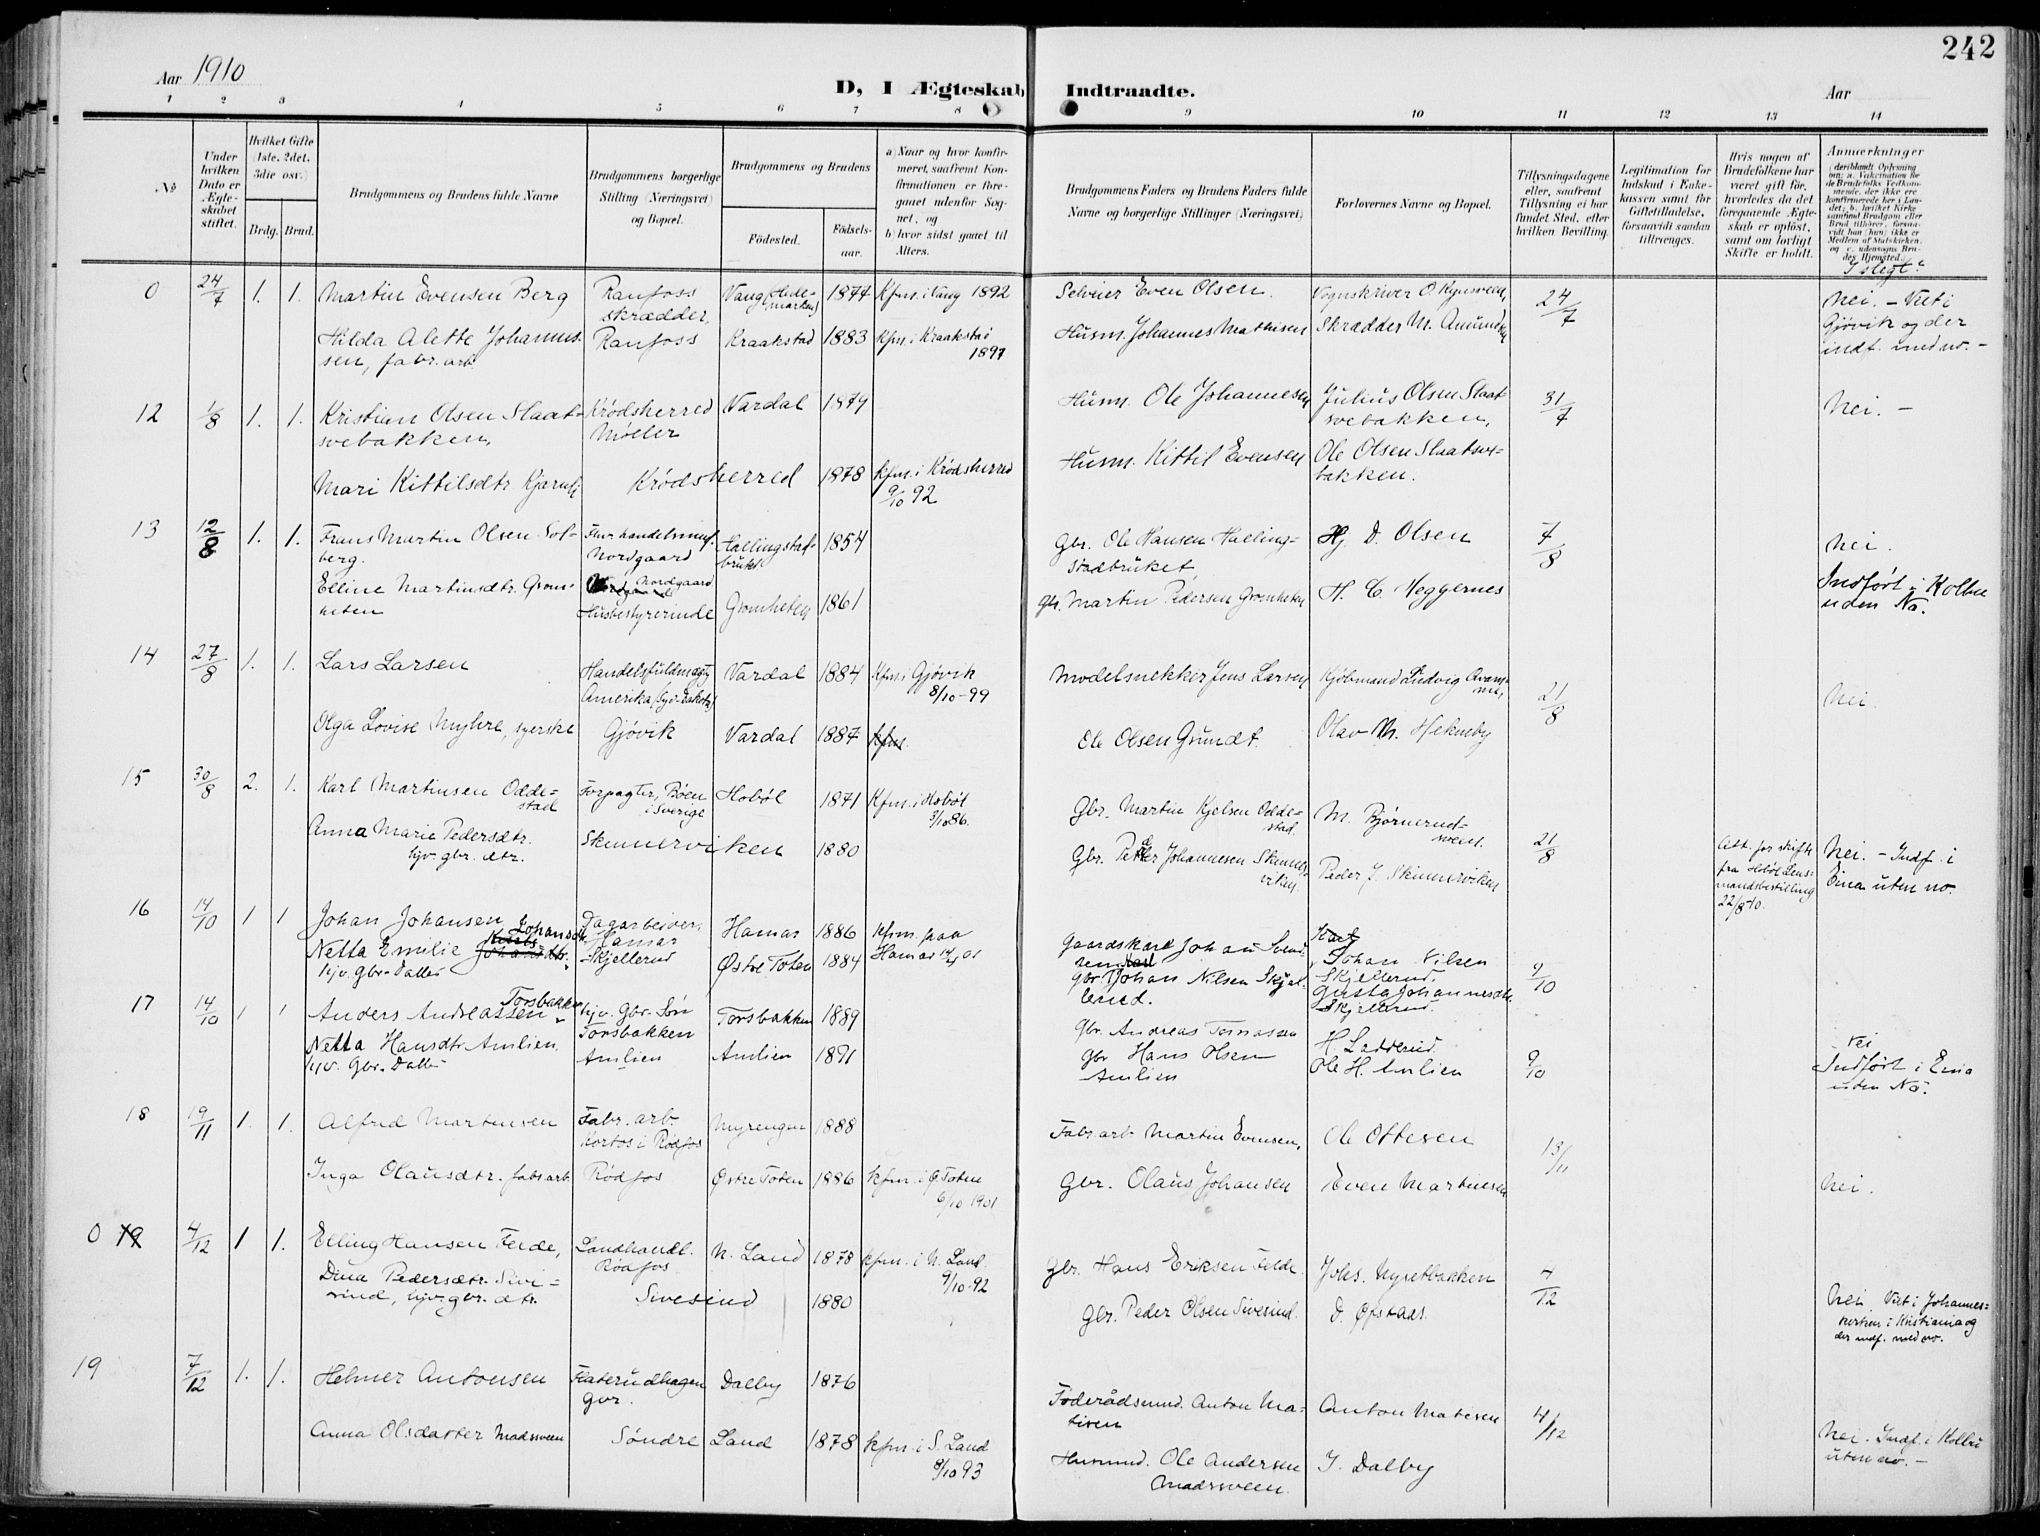 242
Aar 1910
D, I Ægteskab Indtraadte.
Aar
1 2 3 4 5 6 7 8 9 10 11 12 13 14
No
Under hvilken Dato er Ægteskabet stiftet.
Hvilket Gifte (1ste, 2det, 3die osv.)
Brdg. Brud.
Brudgommens og Brudens fulde Navne
Brudgommens borgerlige Stilling (Næringsvei) og Bopæl.
Brudgommens og Brudens
Fødested.
Fødselsaar.
a) Naar og hvor konfirmeret, saafremt Konfirmationen er foregaaet udenfor Sognet, og
b) hvor sidst gaaet til Alters.
Brudgommens Faders og Brudens Faders fulde Navne og borgerlige Stillinger (Næringsvei)
Forlovernes Navne og Bopæl.
Tillysningsdagene eller, saafremt Tillysning ei har fundet Sted, efter hvilken Bevilling.
Legitimation for Indskud i Enkekassen samt for Giftetilladelse, forsaavidt saadan tiltrænges.
Hvis nogen af Brudefolkene har været gift før, hvorledes da det foregaaende Ægteskab er opløst, samt om lovligt Skifte er holdt.
Anmærkninger
(deriblandt Oplysning om: a. Vakcination for de Brudefolks Vedkommende, der ikke ere konfirmerede her i Landet; b. hvilket Kirkesamfund Brudgom eller Brud tilhører, forsaavidt han (hun) ikke er Medlem af Statskirken, og c. udensogns Brudes Hjemsted.)
I slegt?
0 24/7 1. 1. Martin Evensen Berg
Ranfoss skrædder,
Vang (Hedemarken) 1874 Kfm. i Vang 1892
Selveier Even Olsen.
24/7
Hilda Alette Johannessen, fabr. arb.
Ranfoss Kraakstad 1883 Kfm. i Kraakstad 1897
Husm. Johannes Mathisen
Skrædder M. Amundsen
Nei. – Viet i Gjøvik og der indf. med no. –
12 1/8 1. 1. Kristian Olsen Slaatsvebakken,
Krødsherred Møller
Vardal 1879
Husm. Ole Johannesen
Julius Olsen Slaatsvebakken,
31/7
Nei. –
Mari Kittilsdtr Kjærnli
Krødsherred 1878 kfm. i Krødsherred 9/10 92
Husm. Kittil Evensen
Ole Olsen Slaatsvebakken.
13 12/8 1. 1. Frans Martin Olsen Solberg.
Nordgaard
Hallingstadbruket 1854
Gbr. Ole Hansen Hallingstadbruket
Hj. D. Olsen
7/8
Nei.
Elline Martinsdtr. Gromheten
Nordgaard
Husbestyrerinde Gromheten 1861
gbr. Martin Pedersen Gromheten
H. C. Heggernes
Indført i Kolbu uden No.
14 27/8 1. 1. Lars Larsen
Handelsfuldmægtig Amerika (Syd-Dakota)
Vardal 1884 Kfm. i Gjøvik 8/10-99
Modelsnekker Jens Larsen
Kjøbmand Ludvig
21/8
Nei.
Olga Lovise Myhre, syerske
Gjøvik Vardal 1887 kfm.
Ole Olsen Grundt.
Olav M. Hekneby
15 30/8 2. 1. Karl Martinsen Oddestad
Forpagter, Böen i Sverige
Hobøl 1871 Kfm. i Hobøl 3/10 86.
Gbr. Martin Kjelsen Oddestad.
M. Bjørnerudsveen.
21/8
Anna Marie Pedersdtr. hjv. gbr. dtr.
Skinnerviken 1880
Gbr. Peder Johannesen Skinnerviken.
Peder J. Skinnerviken
Att. for skifte fra Hobøl Lensmandsbestilling 22/8 10.
Nei. – Indf. i Eina uten no.
16 14/10 1 1 Johan Johansen
Dagarbeider, Hamar
Hamar 1886 kfm. paa Hamar
Gaardskarl Johan Svendsen
Netta Emilie Johansdtr. hjv. Gbr. Datter
Skjellerud Østre Toten 1884
gbr. Johan Nilsen Skjellerud.
Johan Nilsen Skjellerud.
Gusta Johannesdtr Skjellerud.
9/10
17 14/10 1 1 Anders Andreassen Torsbakken
hjv. Gbr. Søn Torsbakken
Torsbakken 1889
Gbr. Andreas Tomassen
H. Ladderud.
Netta Hansdtr Amlien. hjv. Gbr. Datter
Amlien Amlien 1891
gbr Hans Olsen Amlien
Ole H. Amlien
9/10
Nei
Indført i Eina uden No.
18 19/11 1. 1. Alfred Martinsen
Fabr. arb. Kortos i Rødfos
Myrengen 1888
Fabr arb. Martin Evensen.
Ole Ottesen
13/11
Inga Olausdtr. fabr arb.
Rødfos Østre Toten 1886 kfm. i Ø Toten 6/10 1901
Gbr. Olaus Johansen
Even Martinsen
Nei.
0 19 4/12 1 1. Elling Hansen Felde,
Landhandl. Rødfos
N. Land 1878 kfm. i N. Land 9/10-92
Gbr. Hans Eriksen Felde.
Johs. Nyretbakken
4/12
Dina Pedersdtr. Sivesind, hjv. gbr. dtr.
Sivesind 1880
Gbr. Peder Olsen Sivesind.
D. Øfstaas.
Nei. Viet i Johanneskirken i Kristiania og der indf. med no.
19 7/12 1. 1. Helmer Antonsen
Flaterudhagen gbr.
Dalby 1876
Føderådsmd. Anton Matisen
Anton Matisen
4/12
Anna Olsdatter Madsveen
Søndre Land 1878 kfm. i S. Land 8/10 93
Husmd. Ole Andersen Madssveen.
J. Dalby
Nei. Indf. i Kolbu uten no. –